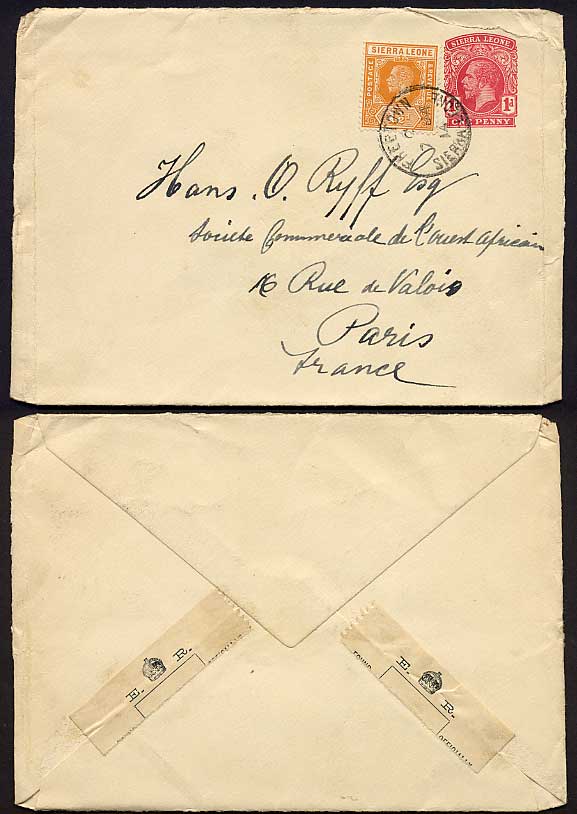 SIERRA LEONE
POSTAGE
SIERRA LEONE
1d
ONE PENNY
FREETOWN
SIERRA
Hans. O. Ryff Esq
Société Commerciale de l'ouest Africain
16 Rue de Valois
Paris
France
E. R.
OFFICIALLY
E. R.
FOUND
OFFICIALLY